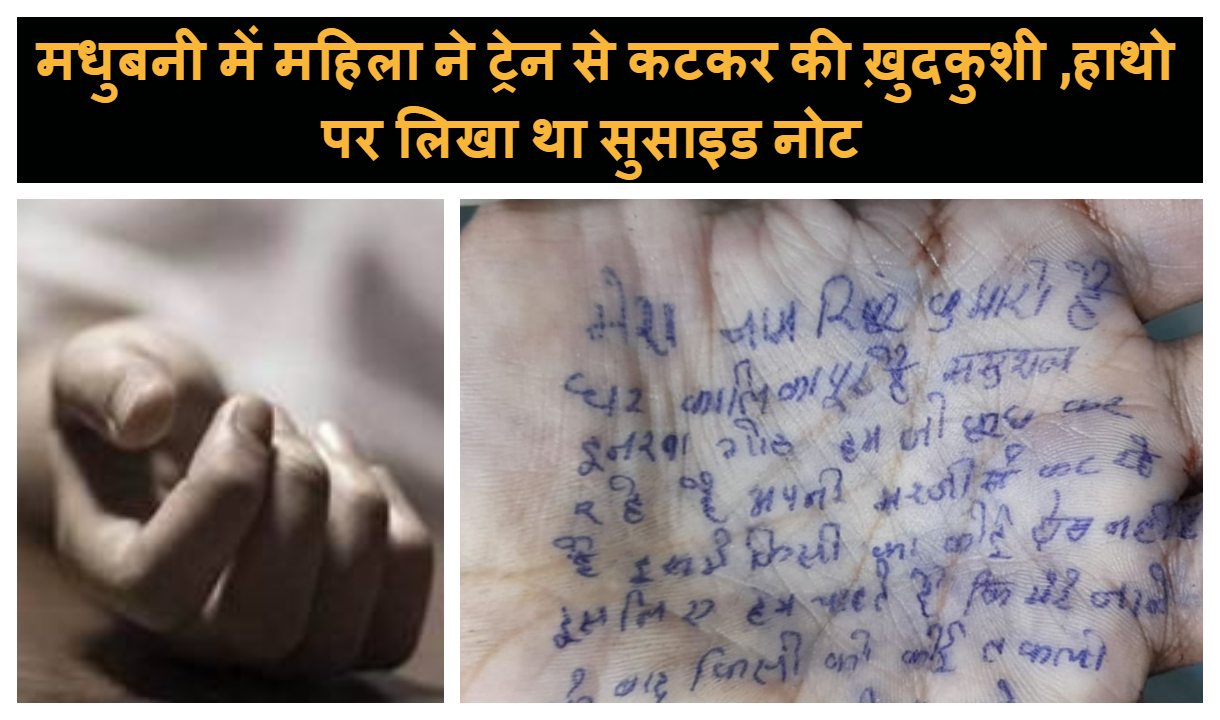 मधुबनी में महिला ने ट्रेन से कटकर की ख़ुदकुशी ,हाथो
पर लिखा था सुसाइड नोट
मेरा नाम कुमारी है
घर कालिकापूर है ससुराल
इनरवा गोठ हम जो कुछ कर
र हे है अपनी मरजी से कर रहे
है इसमें किसी का कोई दोष नहीं
इसलिए हम चाहते है कि मेरे जाने
के बाद किसी को कोई त कली